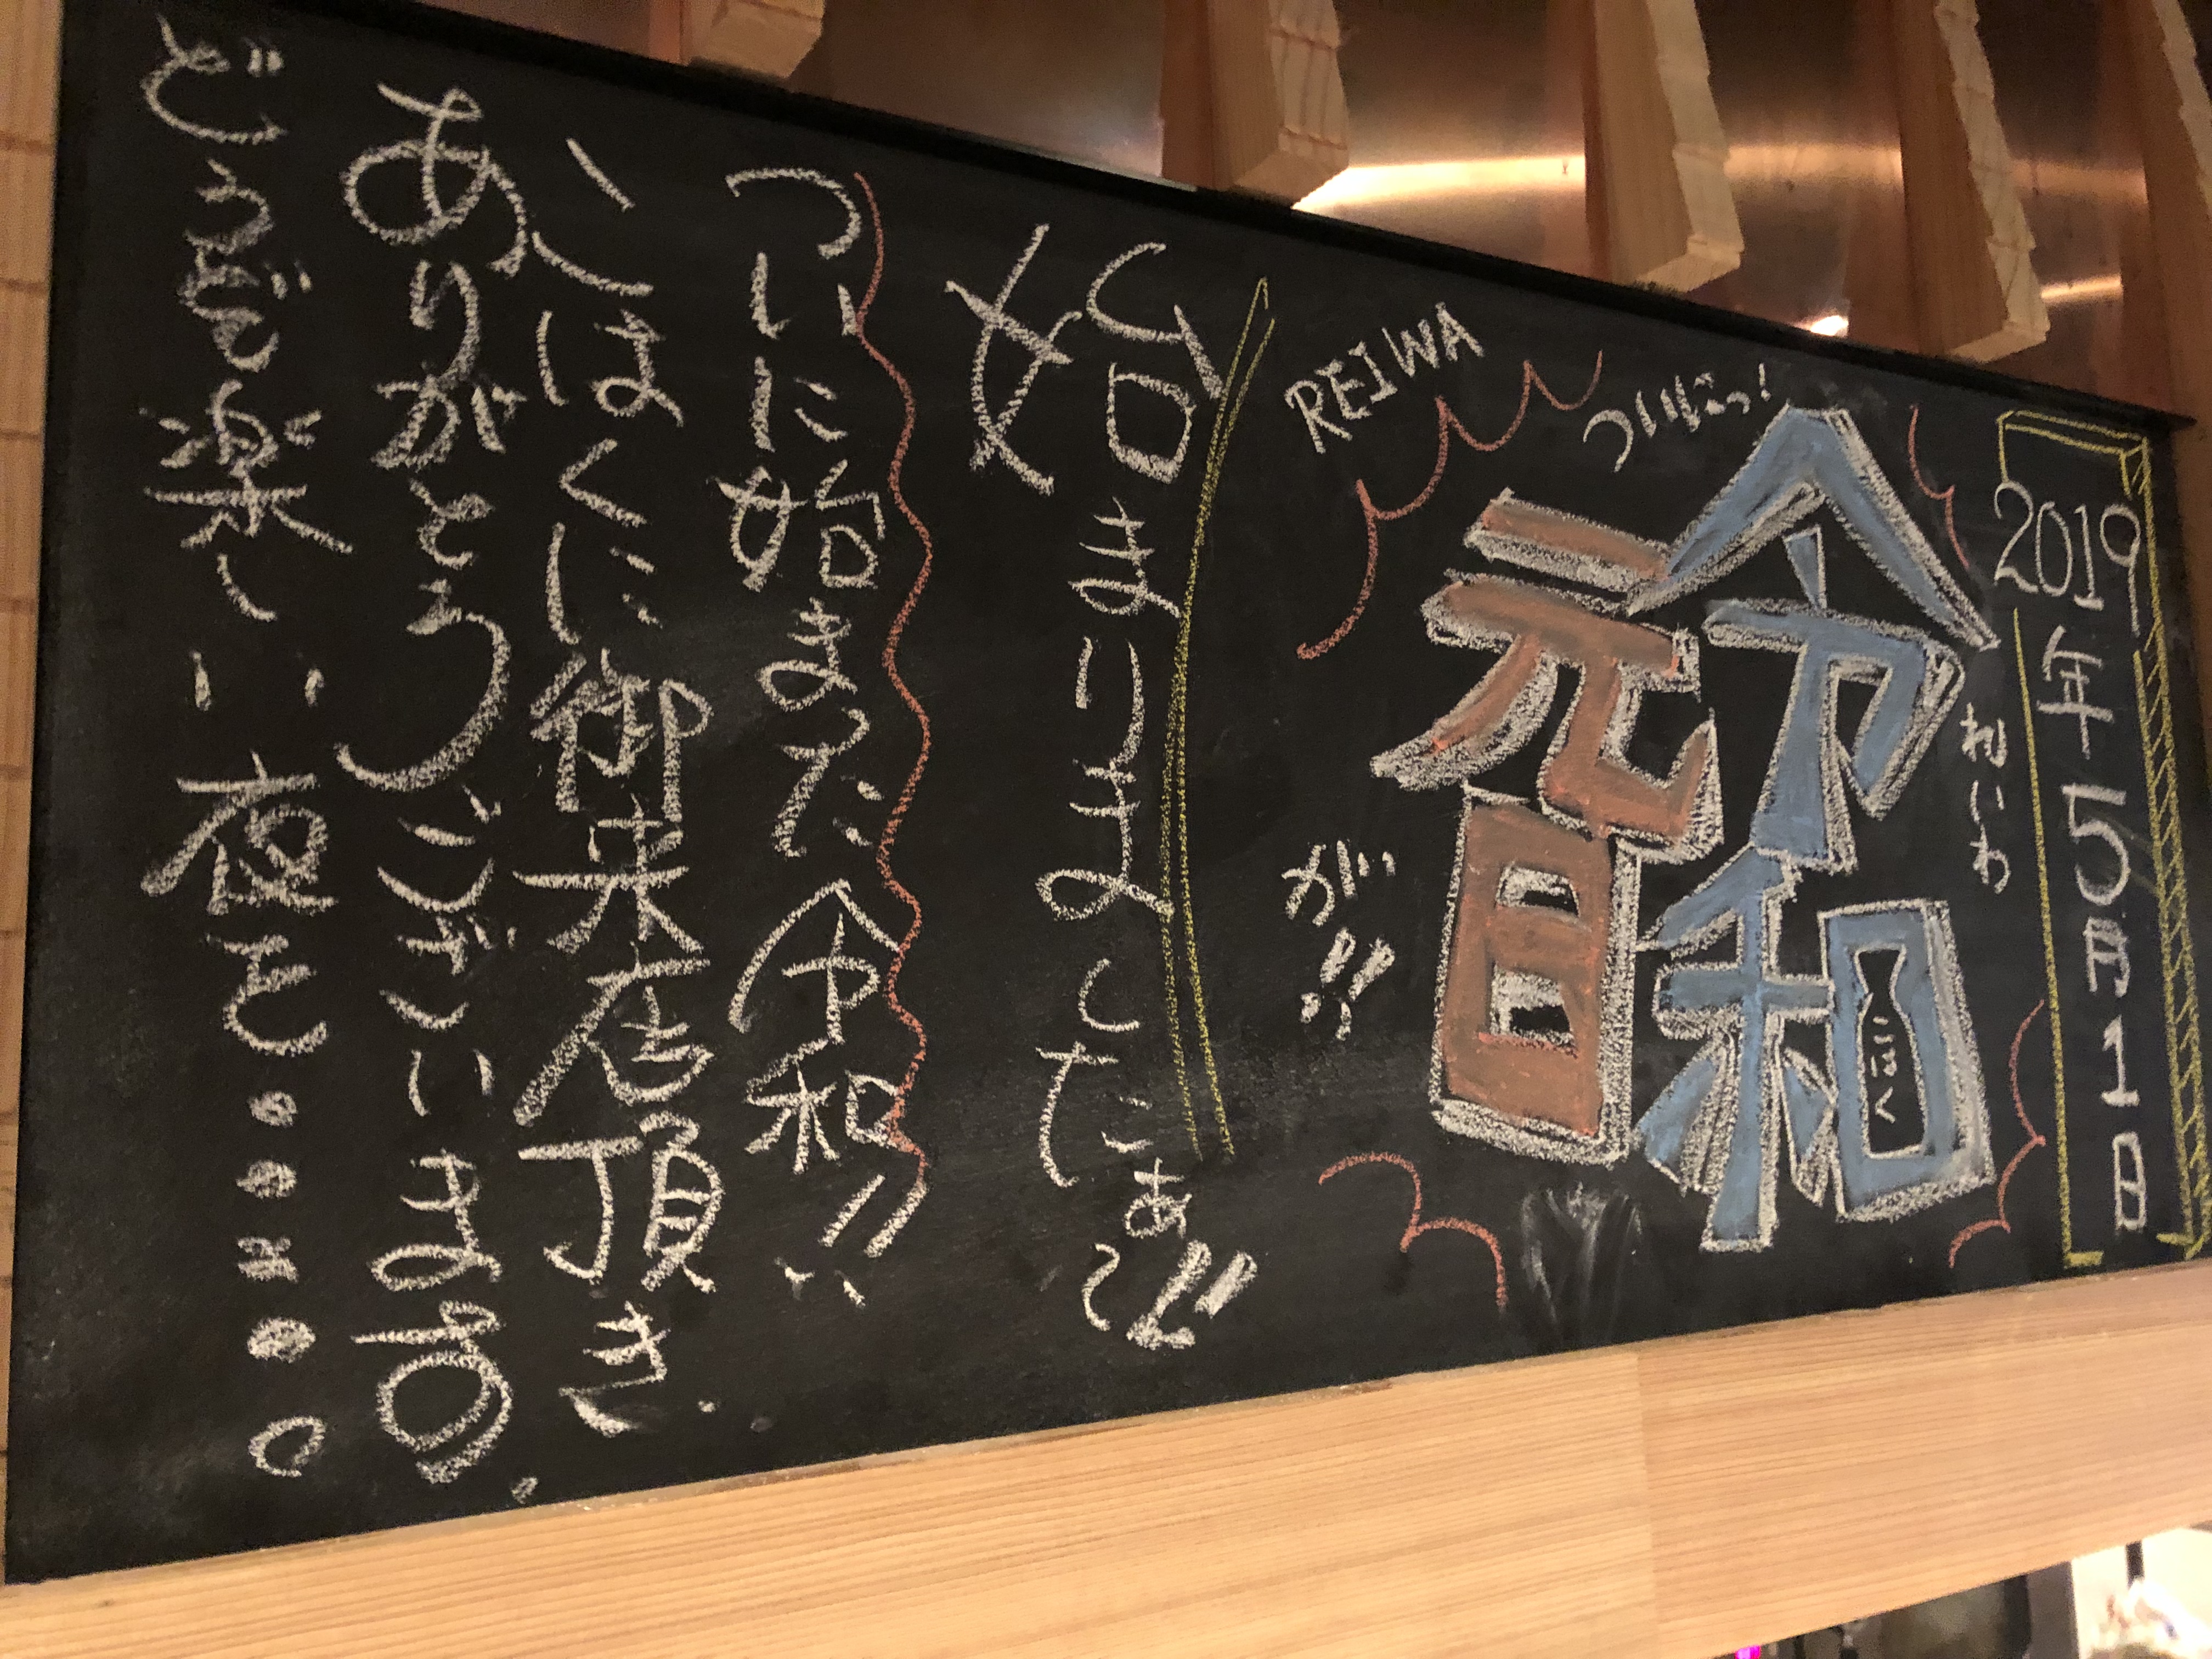 2019年5月1日
れいわ
令和
こはく
元日
ついにっ!
REIWA
が!!
始まりましたぁ〜!!
ついに始まった令和!!
こはくに御来店頂き、
ありがとうございます。
どうぞ楽しい夜を・・・・。